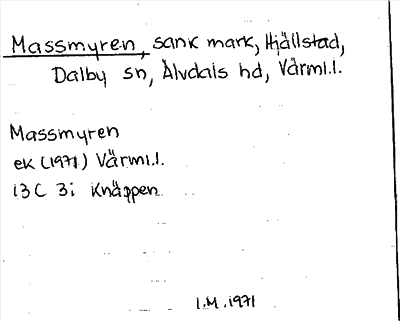 Massmyren, sank mark, Hjällstad,
Dalby sn, Älvdals hd, Värml.l.
Massmyren
ek (1971) Värml.l.
13C 3i Knäppen
I.M. 1971